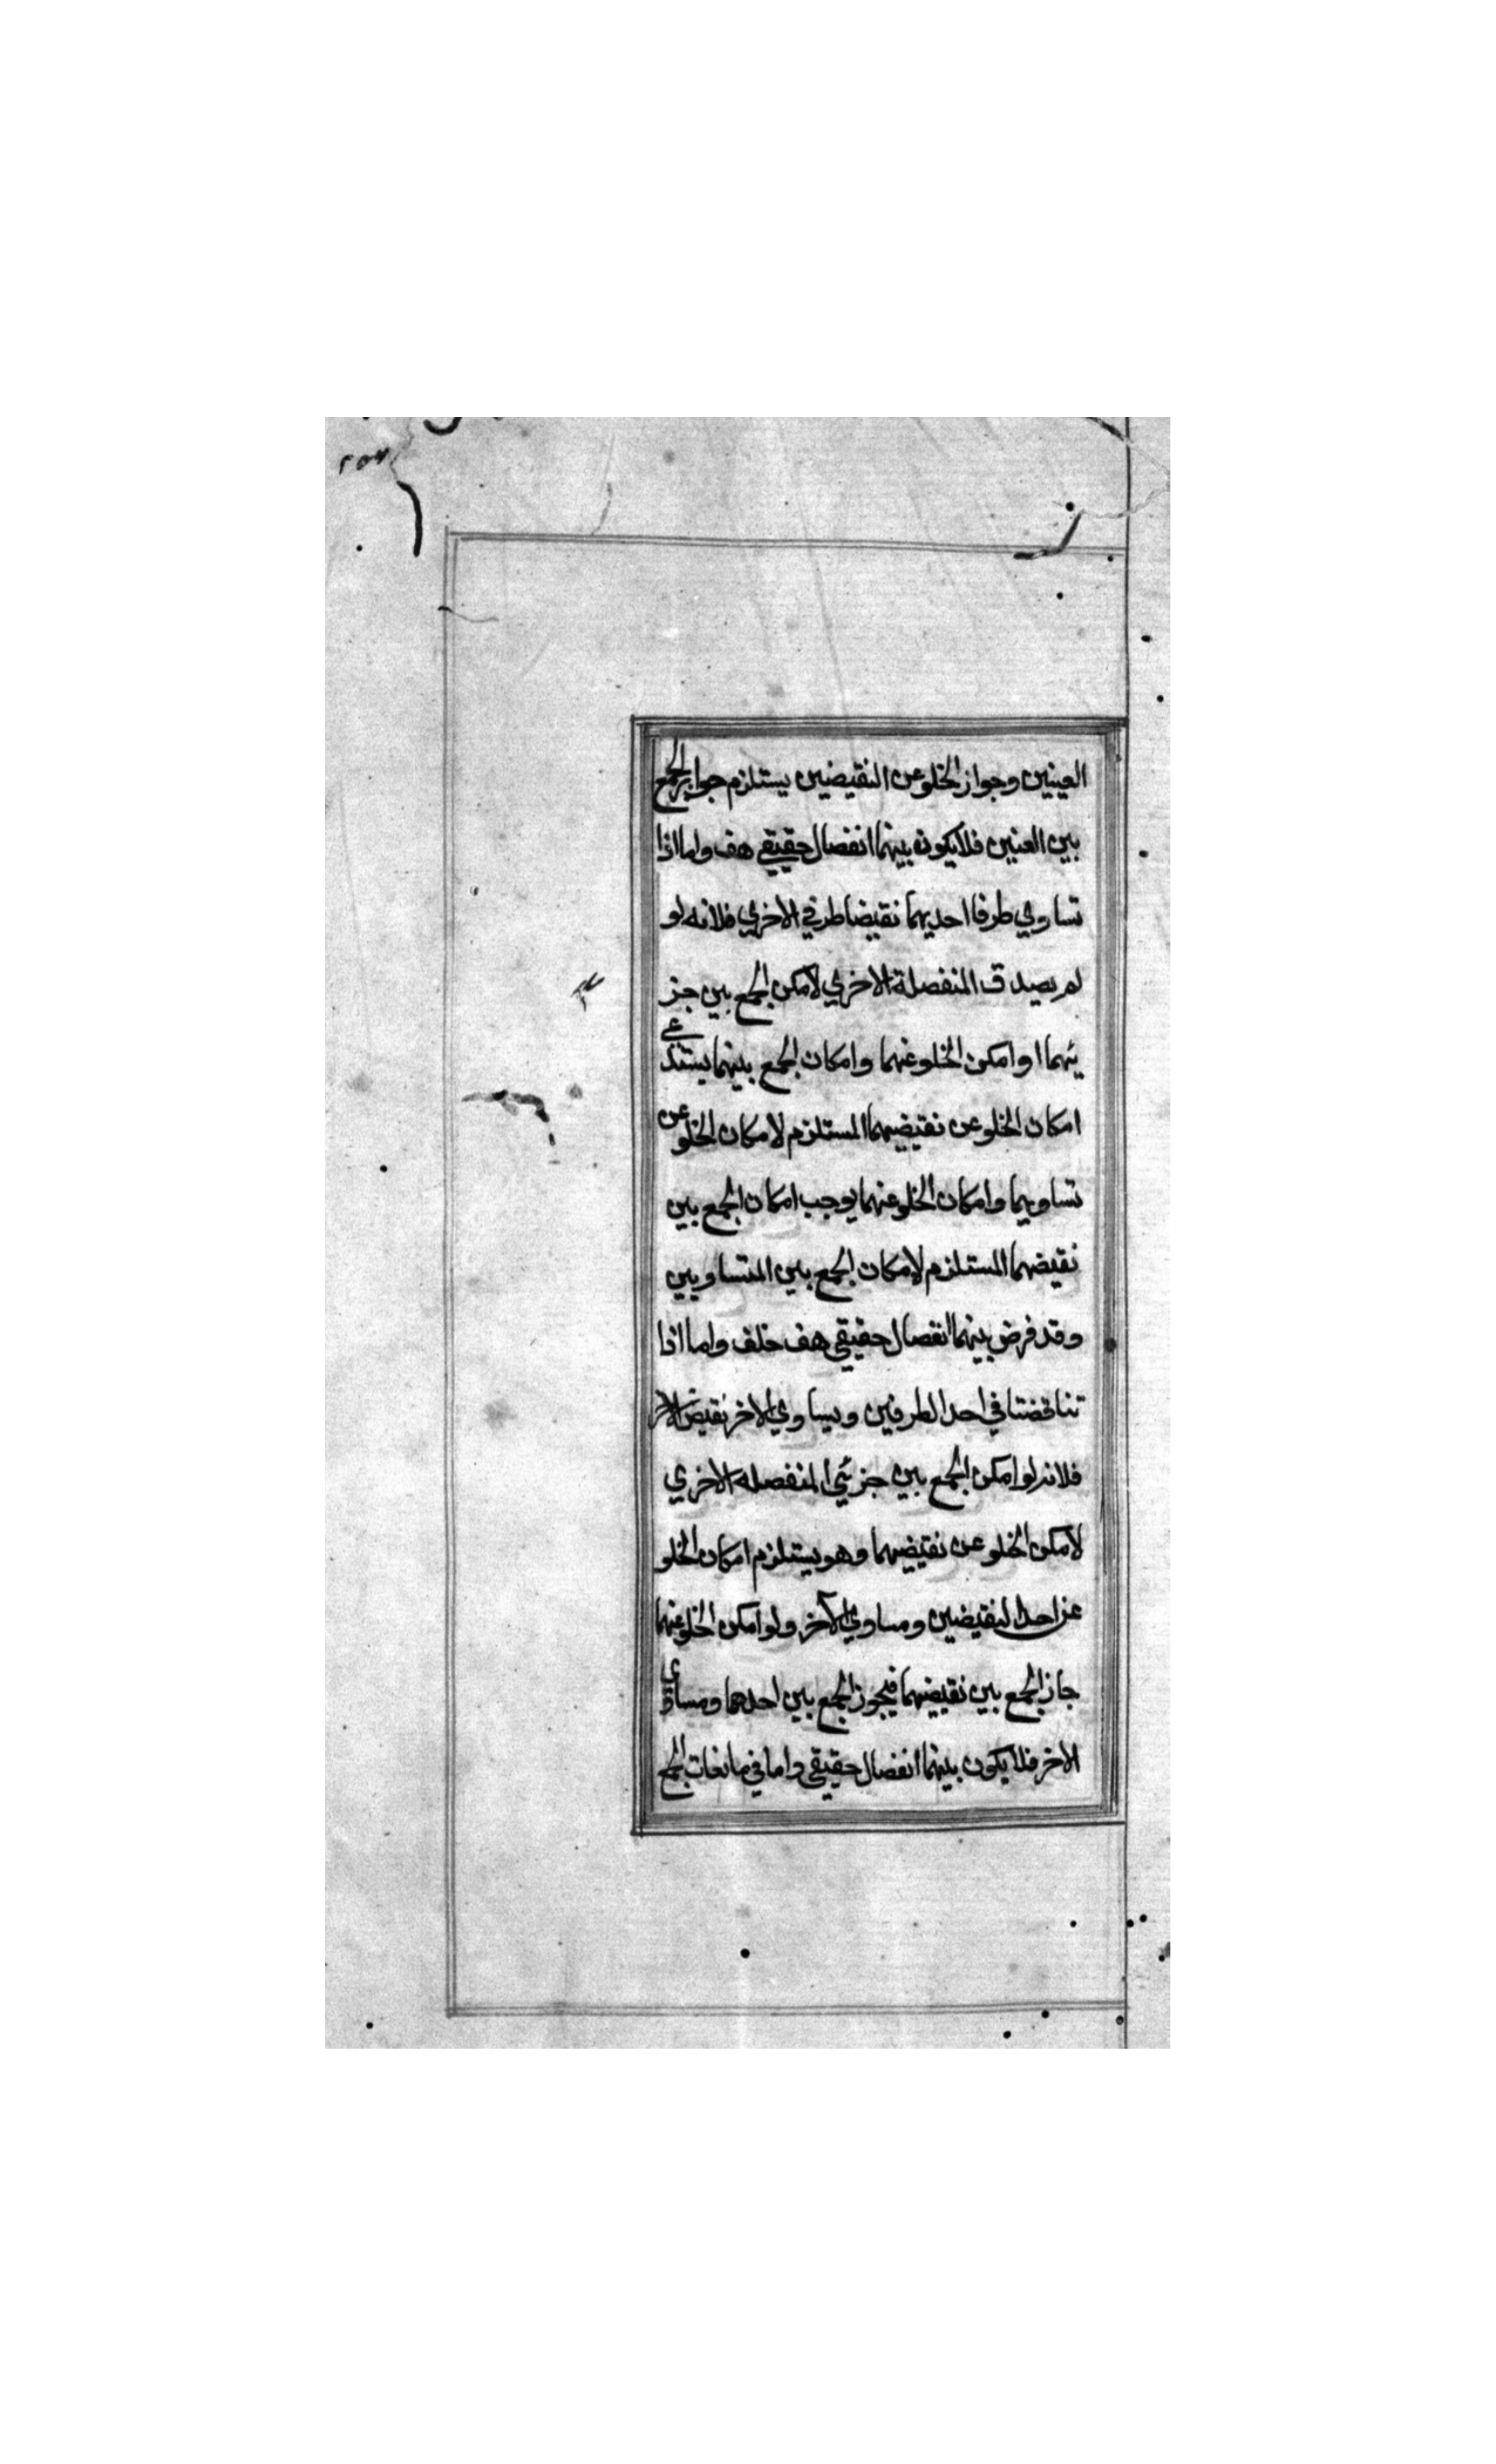 العينين وجواز الخلو عن النقيضين يستلزم جواز الجمع
بين العنين فلا يكون بينهما انفصال حقيقي هف واما اذا
تساوي طرفا احديهما نقيضا طرفي الاخري فلانه لو
لم يصدق المنفصلة الاخري لامكن الجمع بين جز
ئيهما او امكن الخلو عنهما وامكان الجمع بينهما يستدعي
امكان الخلو عن نقيضيهما المستلزم لامكان الخلو عن
تساويهما وامكان الخلو عنهما يوجب امكان الجمع بين
نقيضهما المستلزم لامكان الجمع بين المتساويين
وقد فرض بينهما انفصال حقيقي هف خلف واما اذا
تناقضتا في احد الطرفين ويساوي الاخر نقيض الاخر
فلانه لو امكن الجمع بين جزئي المنفصله الاخري
لامكن الخلو عن نقيضيهما وهو يستلزم امكان الخلو
عن احد النقيضين ومساوي الآخر ولو امكن الخلو عنهما
جاز الجمع بين نقيضيهما فيجوز الجمع بين احدهما ومساوي
الاخر فلا يكون بينهما انفصال حقيقي واما في مانعات الجمع